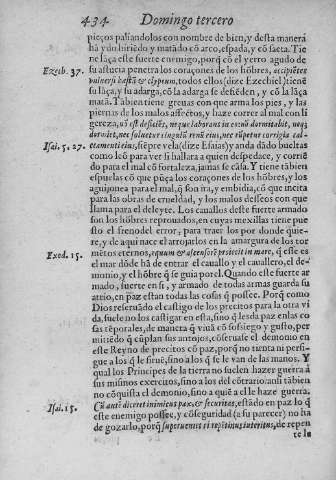 434 Domingo tercero
pieços paliandolos con nombre de bien, y desta manera
hã ydo hiriẽdo y matãdo cõ arco, espada, y cõ saeta. Tie
ne la a este fuerte enemigo, porq̃ cõ el yerro agudo de
Ezech. 37. su astucia penetra los coraçones de los hõbres, accipiētes
vulneri hastã & clypeum, todos ellos (dize Ezechiel) tienẽ
su lãça, y su adarga, cõ la adarga se defiẽden, y cõ la lãça
matã. Tãbien tiene greuas con que arma los pies, y las
piernas de los malos affectos, y haze correr al mal con li
gereza, nõ est deficiēs, neque laborans in eo: nõ dormitabit, neq;
dormiet, nec soluetur cingulũ renũ eius, nec rũpetur corrigia cal-
Isai. 5. 27. ceamenti eius, siẽpre vela (dize Esaias) y anda dãdo bueltas
como leõ para ver si hallara a quien despedace, y corriẽ
do para el mal cõ fortaleza, jamas se cãsa. Y tiene tãbien
espuelas cõ que pũça los coraçones de los hõbres, y los
aguijonea para el mal, q̃ son ira, y embidia, cõ que incita
para las obras de crueldad, y los malos desseos con que
llama para el deleyte. Los cauallos deste fuerte armado
son los hõbres reprouados, en cuyas mexillas tiene pue
sto el freno del error, para traer los por donde quie-
re, y de aqui nace el arrojarlos en la amargura de los tor
Exod. 15. mẽtos eternos, equum & ascensorẽ proiecit in mare, q̃ este es
el mar dõde hã de entrar el cauallo y el cauallero, el de-
monio, y el hõbre q̃ se guia por el. Quando este fuerte ar
mado, fuerte en si, y armado de todas armas guarda su
atrio, en paz estan todas las cosas q̃ possee. Porq̃ como
Dios reseruado el castigo de los precitos para la otra vi
da, suele no los castigar en esta, sino q̃ les da paz en las co
sas tẽporales, de manera q̃ viuã cõ sossiego y gusto, per
mitiẽdo q̃ cũplan sus antojos, cõseruase el demonio en
este Reyno de precitos cõ paz, porq̃ no tienta ni persi-
gue a los q̃ le siruẽ, sino a los q̃ se le van de las manos. Y
qual los Principes de la tierra no suelen hazer guerra a
sus mismos exercitos, sino a los del cõtrario: ansi tãbien
no cõquista el demonio, sino a quiẽ a el le haze guerra.
Isai. 15. Cũ autẽ diceret inimicus pax, & securitas, estãdo en paz lo q̃
este enemigo possee, y cõ seguridad (a su parecer) no ha
de gozarlo, porq̃ superueniet ei repẽtinus interitus, de repen
te le